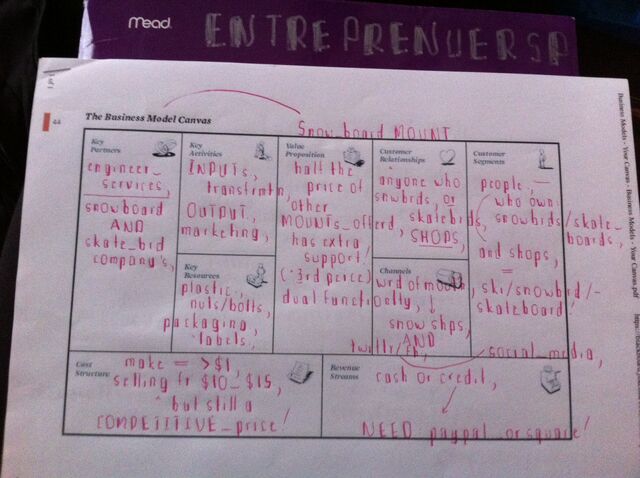 Mead.
ENTREPRENUERSP
44
The Business Model Canvas
Snowboard MOUNT
Key
Partners
engineer_
services,
snowboard
AND
skate_brd
company's,
Key
Activities
INPUTs,
transfrmtn,
OUTPUT,
marketing,
Key
Resources
plastic,
nuts/bolts,
packaging,
labels,
Value
Proposition
half the
price of
other
MOUNTs_offerd,
has extra
support!
(·3rd peice)
dual functionelty,
Customer
Relationships
anyone who
snwbrds, or
skatebrds,
SHOPS,
Channels
wrd of mouth,
snow shps,
AND
twittr/fb,
social_media,
Customer
Segments
people,
who own
snowbrds/skate_
boards,
and shops,
=
ski/snowbrd/-
skateboard!
Cost
Structure
make = >$1,
selling fr $10-$15,
but still a
COMPETITIVE_price!
Revenue
Streams
cash or credit,
NEED paypal or square!
Business Models - Your Canvas - Business Models - Your Canvas.pdf